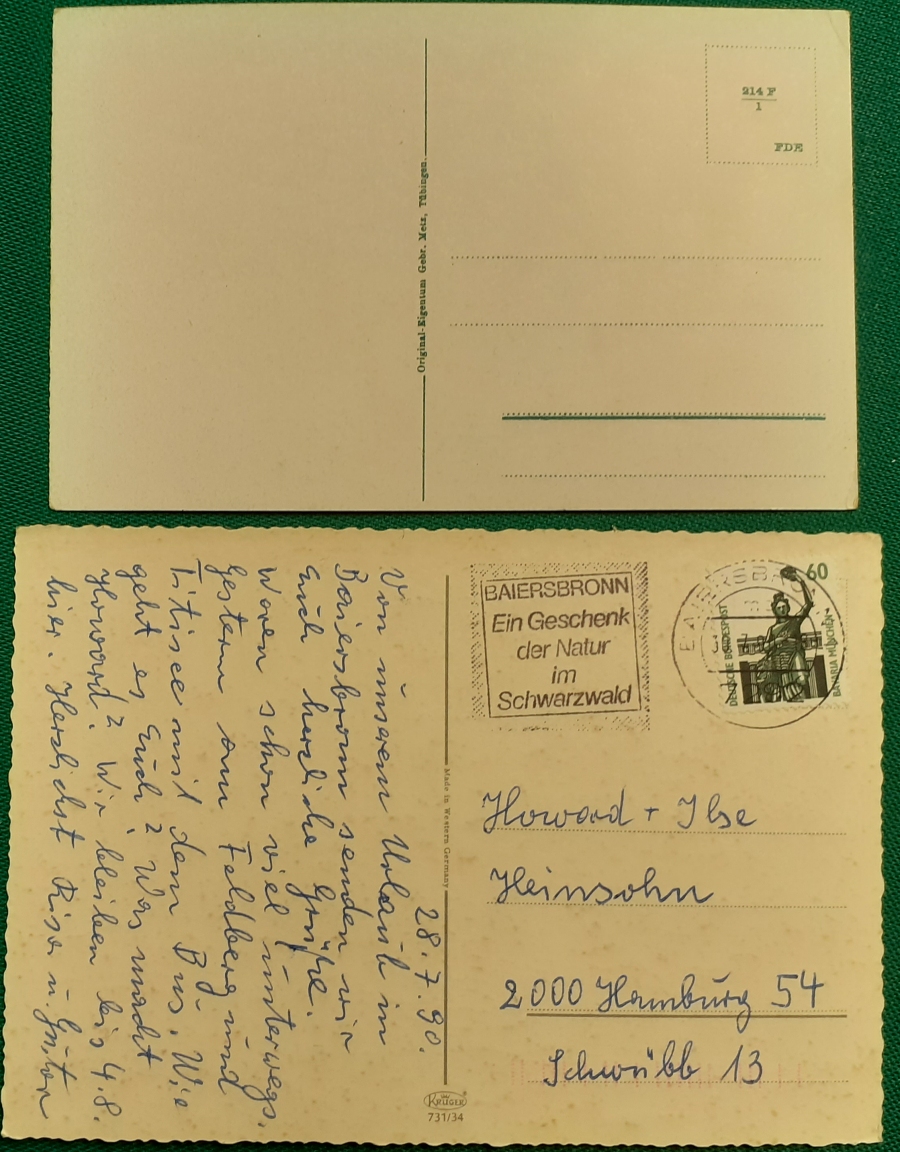 214 F
1
FDE
Original-Eigentum Gebr. Metz, Tübingen.
28.7.90.
Von unserem Urlaub in
Baiersbronn senden wir
Euch herzliche Grüße.
Waren schon viel unterwegs.
Gestern am Feldberg und
Titisee mit dem Bus. Wie
geht es Euch? Was macht
Howard? Wir bleiben bis 4.8.
hier. Herzlichst u. Günter
Made in Western Germany
KRÜGER
731/34
BAIERSBRONN
Ein Geschenk
der Natur
im
Schwarzwald
BAIERSBRONN
60
DEUTSCHE BUNDESPOST
BAVARIA MÜNCHEN
Howard + Ilse
Heinsohn
2000 Hamburg 54
Schwübb 13